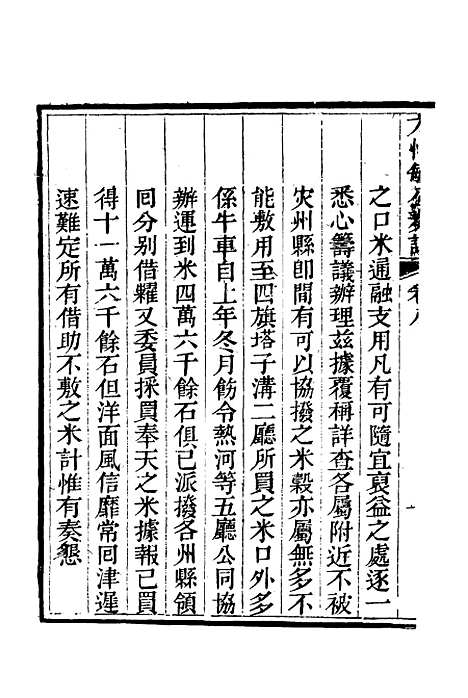 之口米通融支用凡有可隨宜裒益之處逐一
悉心籌議辦理茲據覆稱詳查各屬附近不被
灾州縣卽間有可以協撥之米穀亦屬無多不
能敷用至四旗塔子溝二廳所買之米口外多
係牛車自上年冬月飭令熱河等五廳公同協
辦運到米四萬六千餘石俱已派撥各州縣領
囘分别借糶又委員採買奉天之米據報已買
得十一萬六千餘石但洋面風信靡常囘津遲
速難定所有借助不敷之米計惟有奏懇